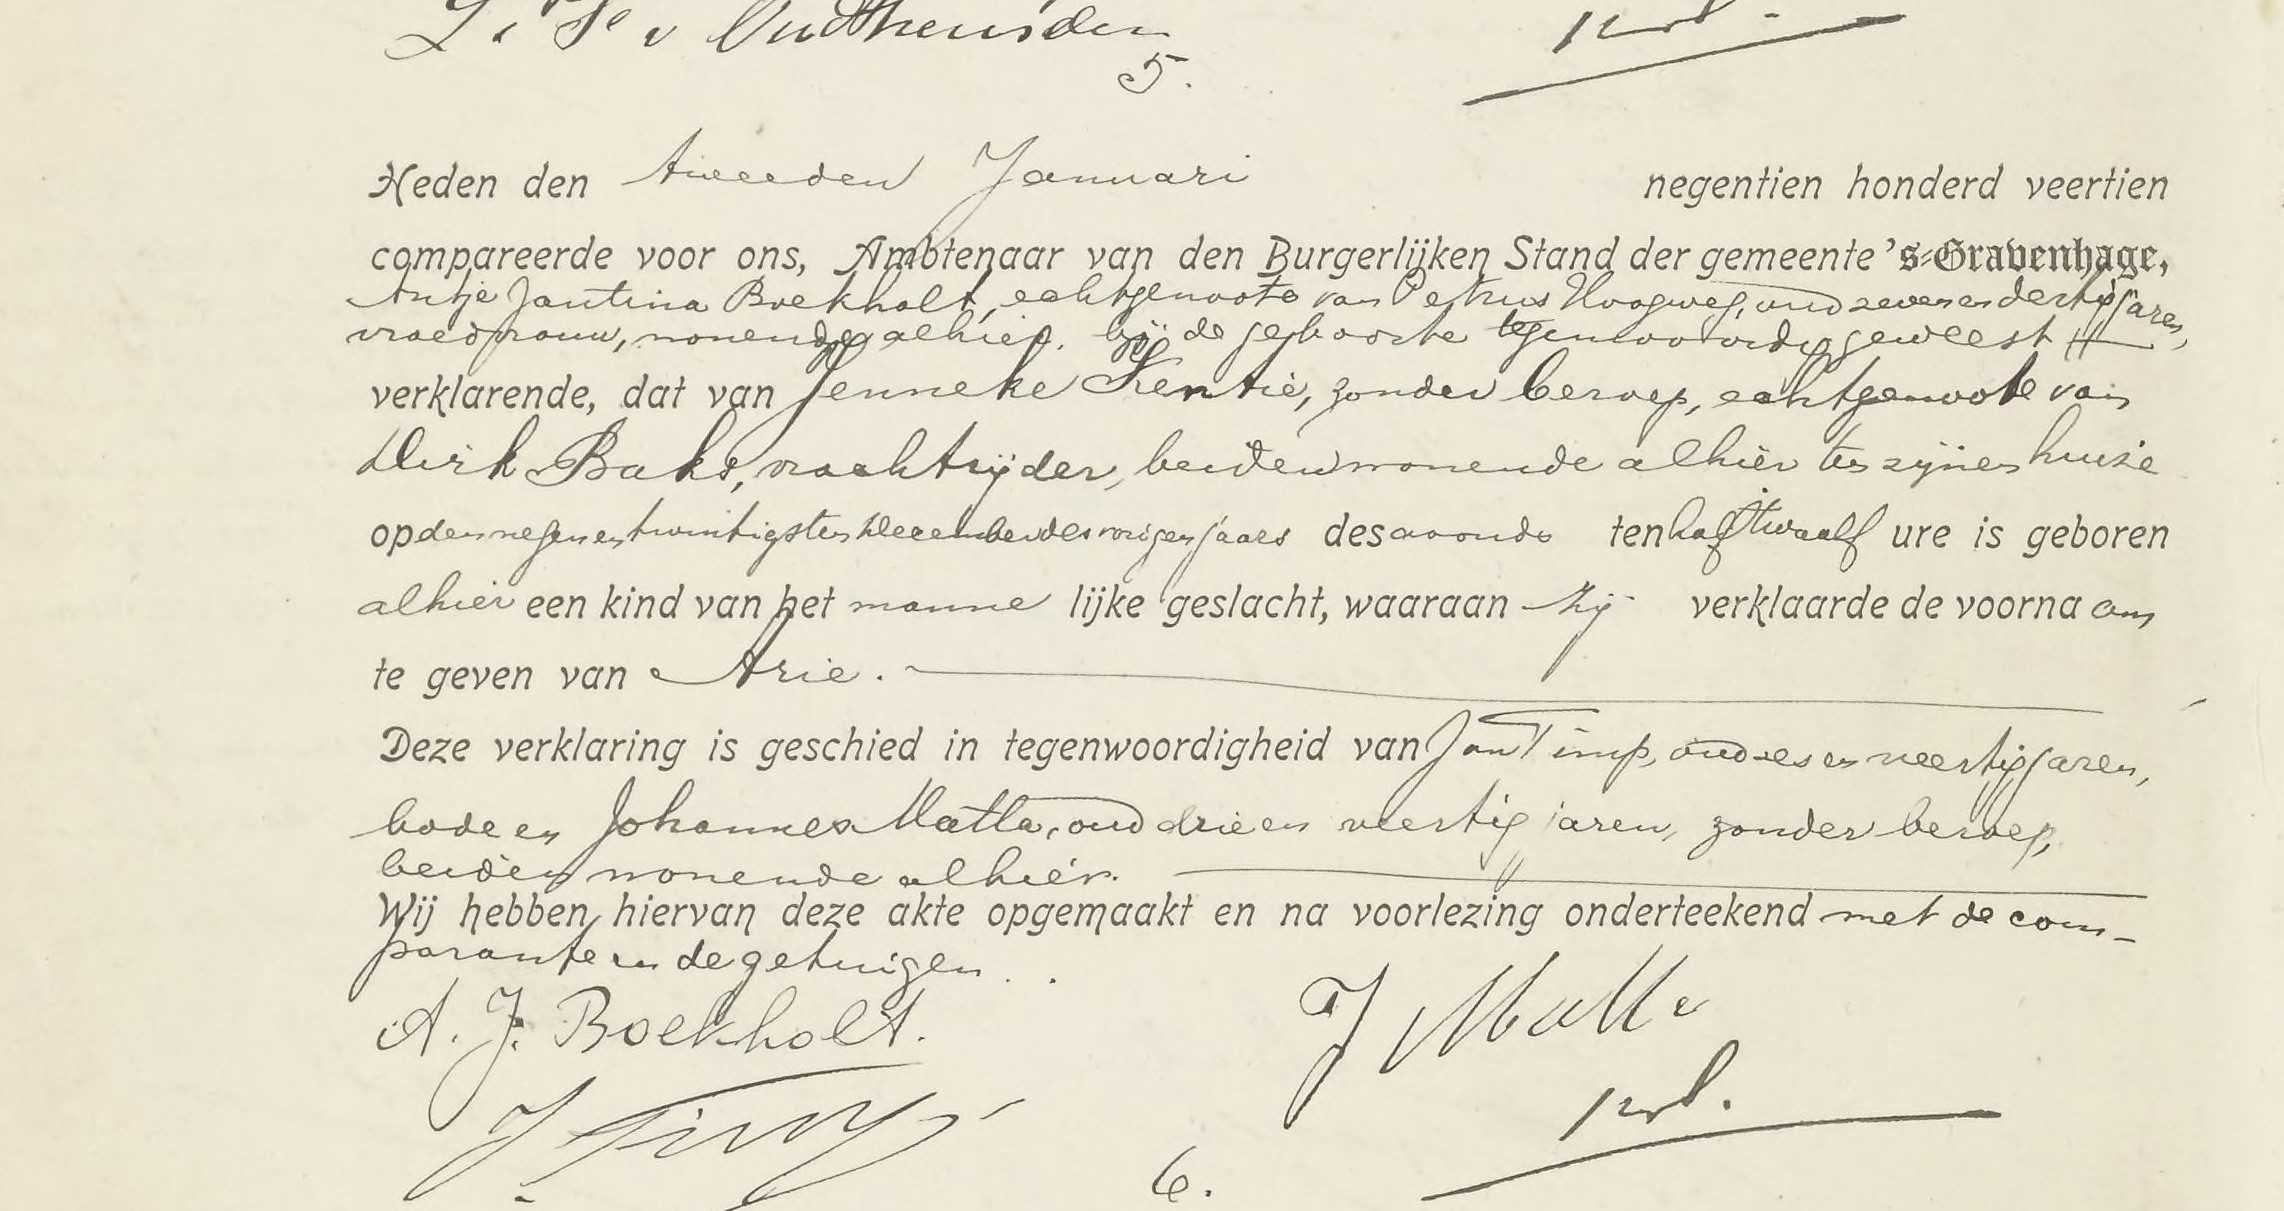 L. P. v Oudtheusden
5.
Heden den tweeden Januari negentien honderd veertien
compareerde voor ons, Ambtenaar van den Burgerlijken Stand der gemeente 's-Gravenhage,
Antje Jantina Boekholt, echtgenoote van Petrus Hoogweg, oud zevenendertig jaren,
vroedvrouw, wonende alhier, bij de geboorte tegenwoordig geweest
verklarende, dat van Jenneke Kentie, zonder beroep, echtgenoote van
Dirk Baks, vrachtrijder, beiden wonende alhier ten zijnen huize
op den negenentwintigsten December des vorigen jaars des avonds ten half twaalf ure is geboren
alhier een kind van het mannelijke geslacht, waaraan zij verklaarde de voornaam
te geven van Arie.
Deze verklaring is geschied in tegenwoordigheid van Jan Timp, oud zes en veertig jaren,
bode en Johannes Matla, oud drie en veertig jaren, zonder beroep,
beiden wonende alhier.
Wij hebben hiervan deze akte opgemaakt en na voorlezing onderteekend met de com-
parante en de getuigen.
A. J. Boekholt. J Matla
J. Timp
6.